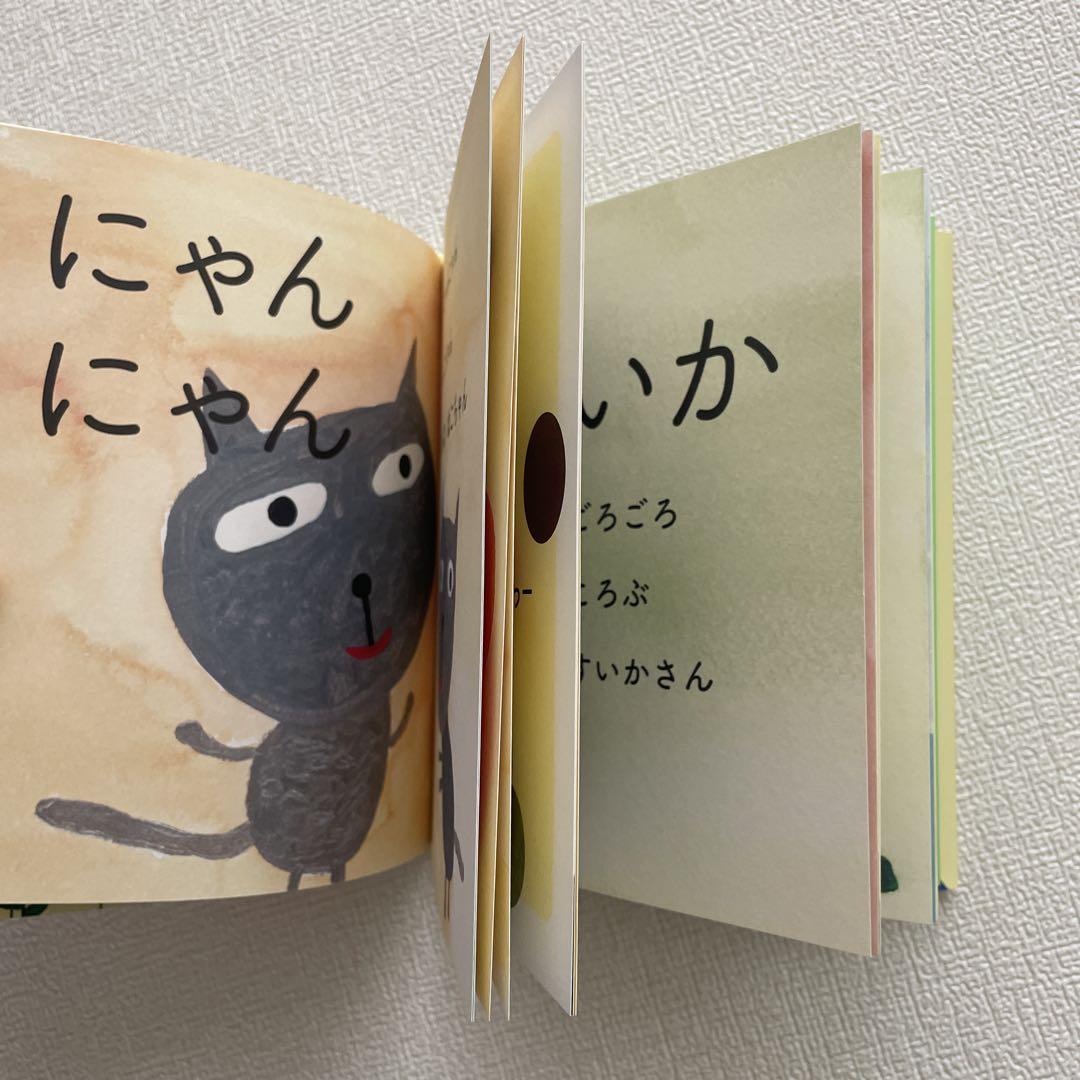 にゃん
にゃん
ねこちゃん
いか
ごろごろ
ころぶ
すいかさん